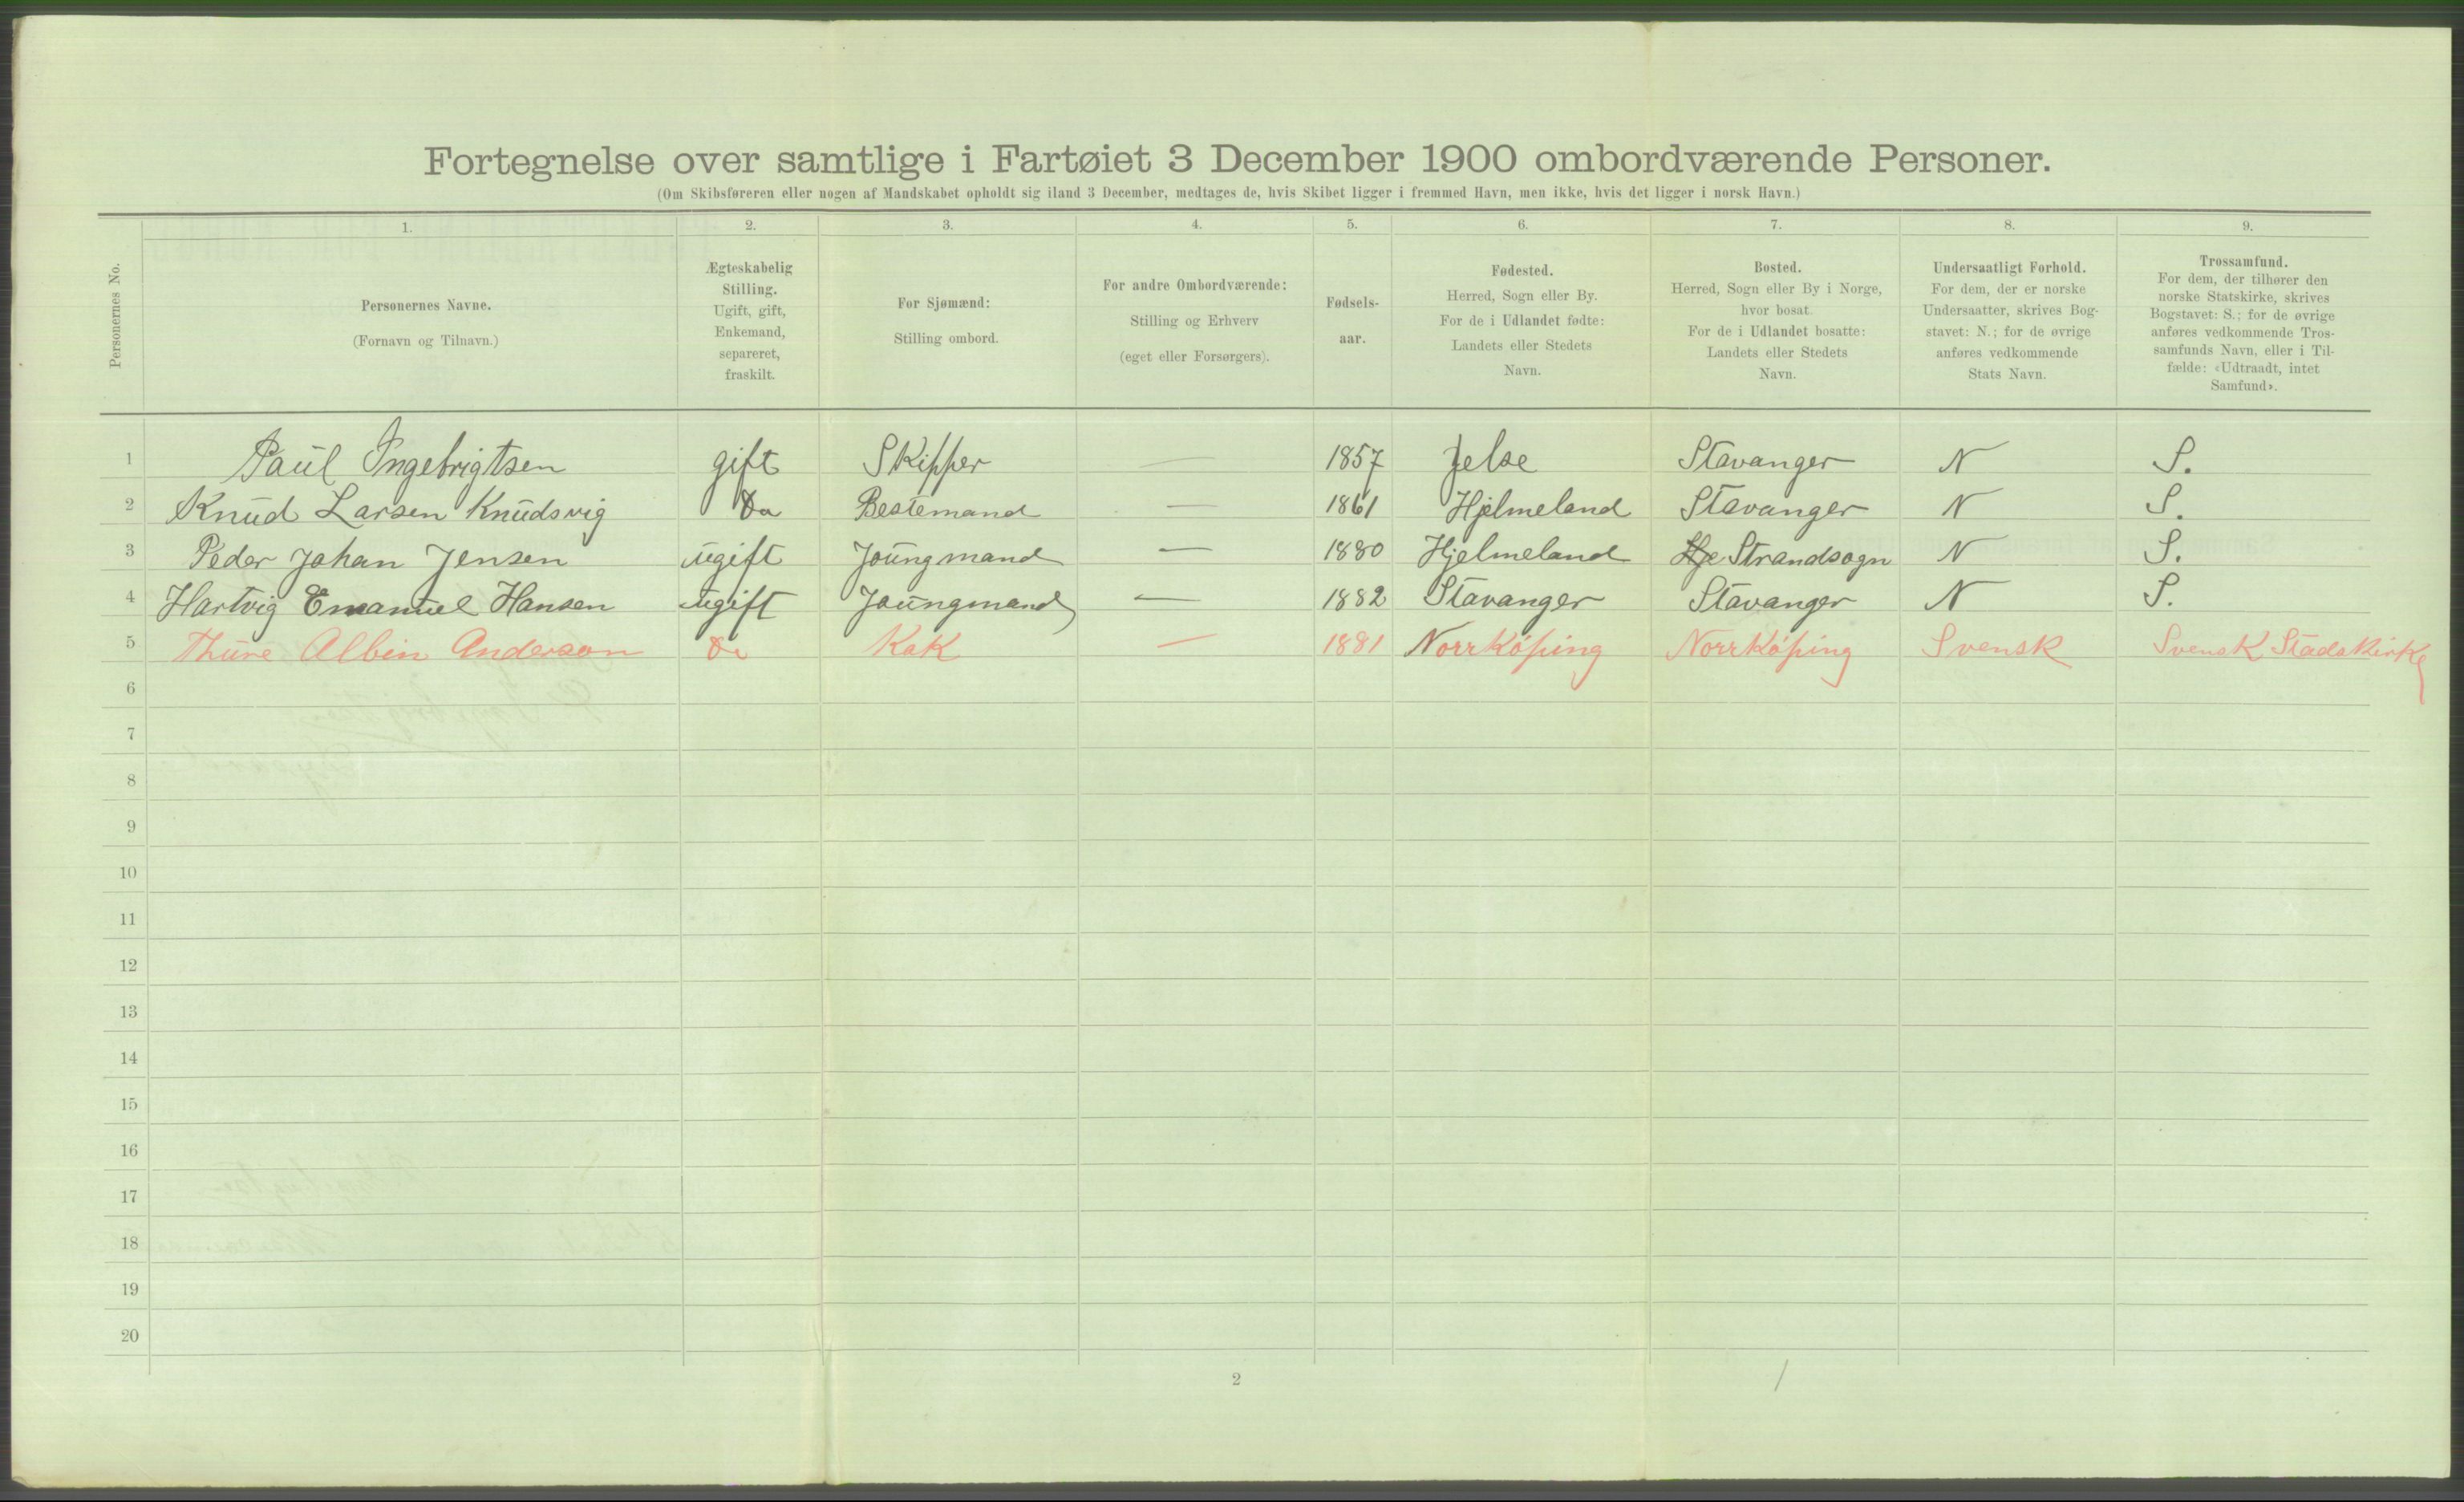 Fortegnelse over samtlige i Fartøiet 3 December 1900 ombordværende Personer.
(Om Skibsføreren eller nogen af Mandskabet opholdt sig iland 3 December, medtages de, hvis Skibet ligger i fremmed Havn, men ikke, hvis det ligger i norsk Havn.)
1. 2. 3. 4. 5. 6. 7. 8. 9.
Personernes No.
Personernes Navne.
(Fornavn og Tilnavn.)
Ægteskabelig
Stilling.
Ugift, gift,
Enkemand,
separeret,
fraskilt.
For Sjømænd:
Stilling ombord.
For andre Ombordværende:
Stilling og Erhverv
(eget eller Forsørgers).
Fødsels-
aar.
Fødested.
Herred, Sogn eller By.
For de i Udlandet fødte:
Landets eller Stedets
Navn.
Bosted.
Herred, Sogn eller By i Norge,
hvor bosat.
For de i Udlandet bosatte:
Landets eller Stedets
Navn.
Undersaatligt Forhold.
For dem, der er norske
Undersaatter, skrives Bog-
stavet: N.; for de øvrige
anføres vedkommende
Stats Navn.
Trossamfund.
For dem, der tilhører den
norske Statskirke, skrives
Bogstavet: S.; for de øvrige
anføres vedkommende Tros-
samfunds Navn, eller i Til-
fælde: «Udtraadt, intet
Samfund».
1 Paul Ingebrigtsen gift Skipper — 1857 Jelse Stavanger N S.
2 Knud Larsen Knudsvig Do Bestemand — 1861 Hjelmeland Stavanger N S.
3 Peder Johan Jensen ugift Joungmand — 1880 Hjelmeland Hje Strandsogn N S.
4 Hartvig Emanuel Hansen ugift Joungmand — 1882 Stavanger Stavanger N S.
5 Thure Albin Anderson Do Kok — 1881 Norrköping Norrköping Svensk Svensk Stadskirke
6
7
8
9
10
11
12
13
14
15
16
17
18
19
20
2